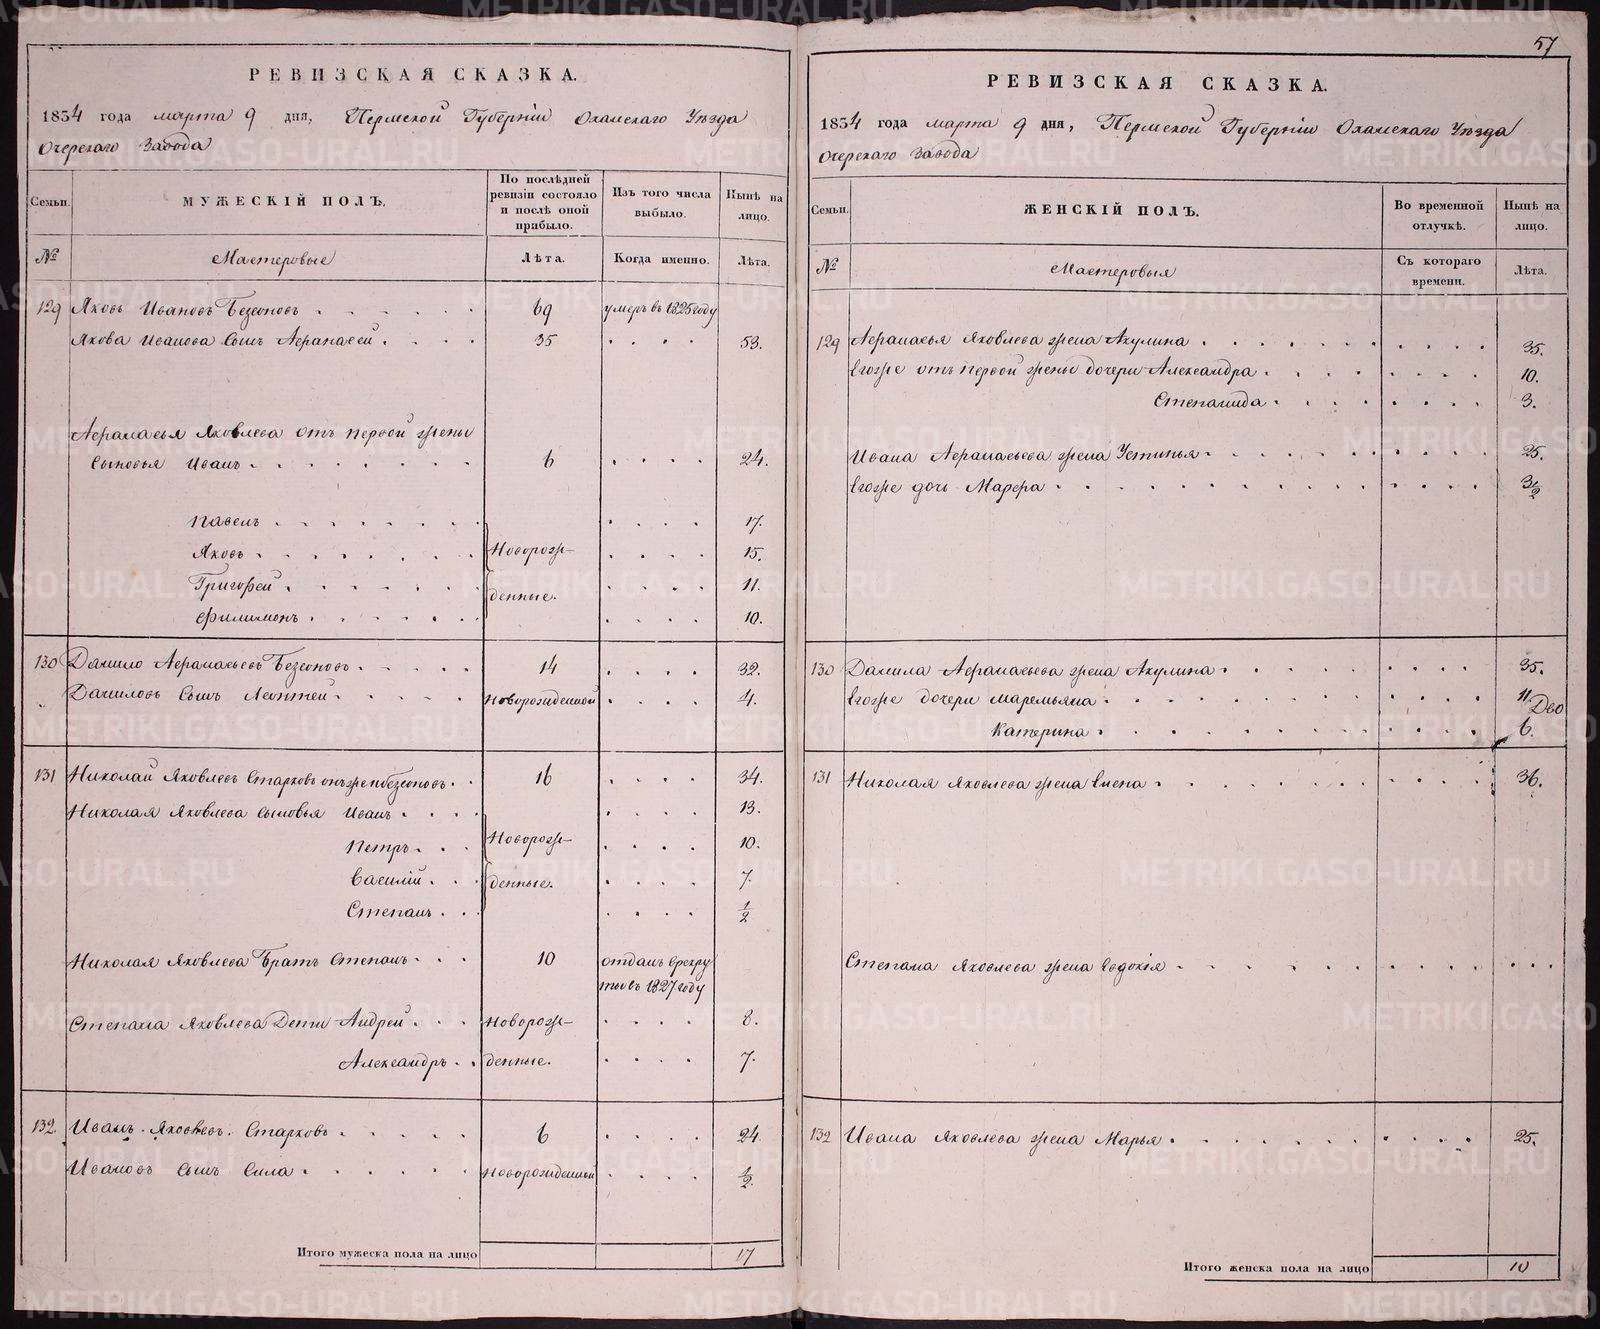 57
РЕВИЗСКАЯ СКАЗКА.
1834 года марта 9 дня, Пермской Губерніи Оханскаго Уѣзда
Очерскаго Завода
Семьи.
МУЖЕСКІЙ ПОЛЪ.
По послѣдней ревизіи состояло и послѣ оной прибыло.
Изъ того числа выбыло.
Нынѣ на лицо.
№
Мастеровые
Лѣта.
Когда именно.
Лѣта.
129 Яковъ Ивановъ Безсоновъ 69 умеръ въ 1825 году
Якова Иванова сынъ Афанасей 35 53.
Афанасья Яковлева отъ первой жены
сыновья Иванъ 6 24.
Павелъ 17.
Яковъ Новорож- 15.
Григорей денные. 11.
Филимонъ 10.
130 Данило Афанасьевъ Безсоновъ 14 32.
Даниловъ сынъ Леонтей новорожденной 4.
131 Николай Яковлевъ Старковъ онъже Безсоновъ 16 34.
Николая Яковлева сыновья Иванъ 13.
Петръ Новорож- 10.
Василій денные. 7.
Степанъ 1/2
Николая Яковлева Братъ Степанъ 10 отданъ врекру
ты въ 1827 году
Степана Яковлева Дети Андрей Новорож- 8.
Александръ денные. 7.
132. Иванъ Яковлевъ Старковъ 6 24
Ивановъ сынъ Сила новорожденной 1/2.
Итого мужеска пола на лицо 17
РЕВИЗСКАЯ СКАЗКА.
1834 года марта 9 дня, Пермской Губерніи Оханскаго Уѣзда
Очерскаго Завода
Семьи.
ЖЕНСКІЙ ПОЛЪ.
Во временной отлучкѣ.
Нынѣ на лицо.
№
Мастеровыя
Съ котораго времени.
Лѣта.
129 Афанасья Яковлева жена Акулина 35.
Егоже отъ первой жены дочери Александра 10.
Степанида 3.
Ивана Афанасьева жена Устинья 25.
Егоже дочь Марфа 3 1/2
130 Данила Афанасьева жена Акулина 35.
Егоже дочери Маремьяна 11. Дво
Катерина 6.
131 Николая Яковлева жена Елена 36.
Степана Яковлева жена Евдокія
132 Ивана Яковлева жена Марья 25.
Итого женска пола на лицо 10
METRIKI.GASO-URAL.RU